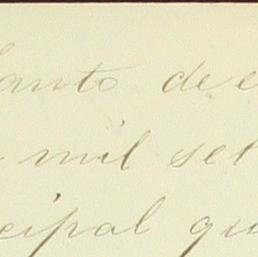 anto de e
mil set
cipal qu